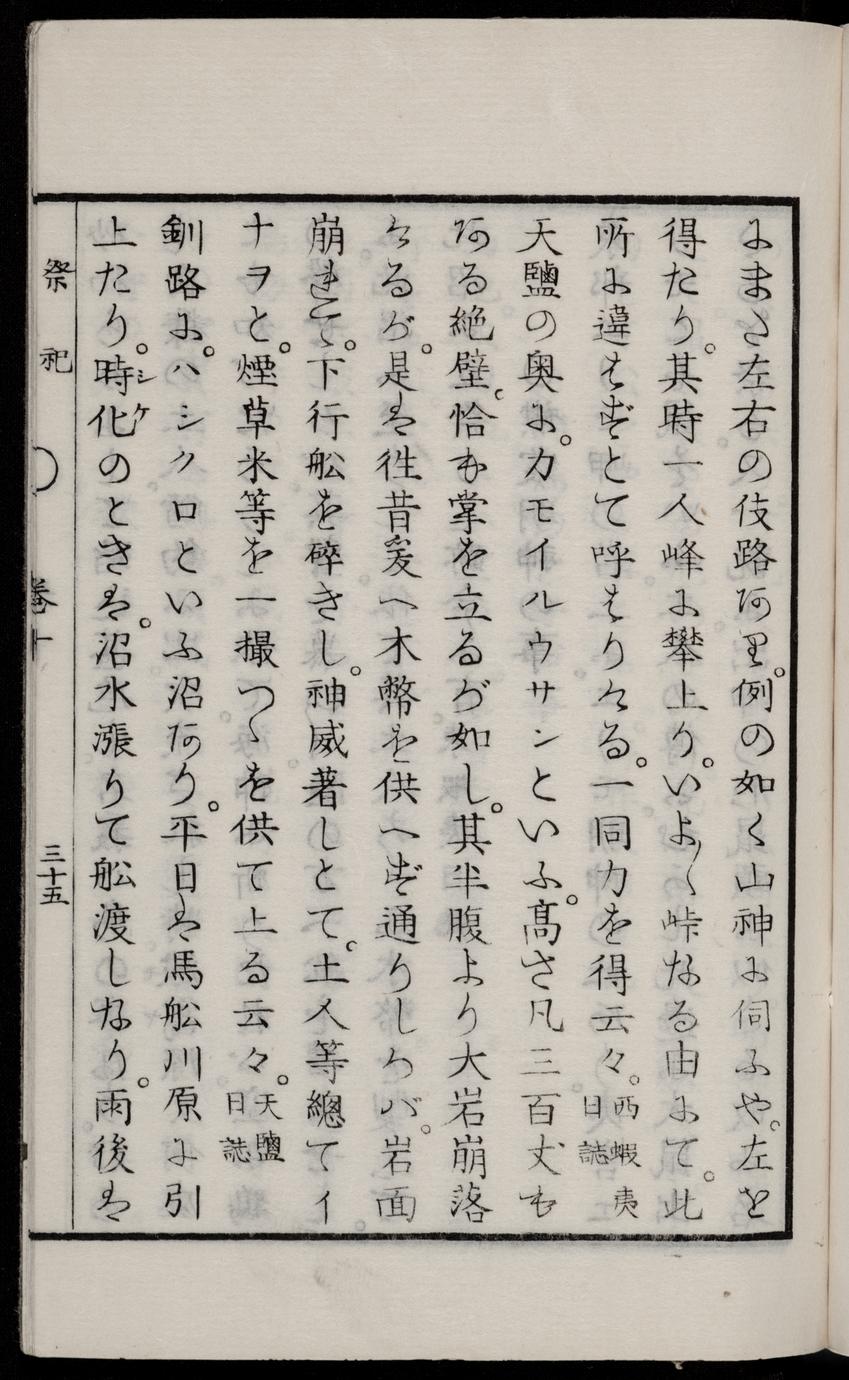 にまた左右の伎路あり。例の如く山神に伺ふや。左を
得たり。其時一人峰に攀上り。いよ〱峠なる由にて。此
所に違はずとて呼はりける。一同力を得云々。西蝦夷日誌
天鹽の奥に。カモイルウサンといふ。髙さ凡三百丈も
ある絶壁。恰も掌を立るが如し。其半腹より大岩崩落
けるが。是は徃昔爰へ木幣を供へず通りしかバ。岩面
崩れて。下行舩を碎きし。神威著しとて。土人等總てイ
ナヲと。煙草米等を一撮つゝを供て上る云々。天鹽日誌
釧路に。ハシクロといふ沼あり。平日は馬舩川原に引
上たり。時化のときは。沼水漲りて舩渡しなり。雨後は
シケ
祭祀
巻十
三十五